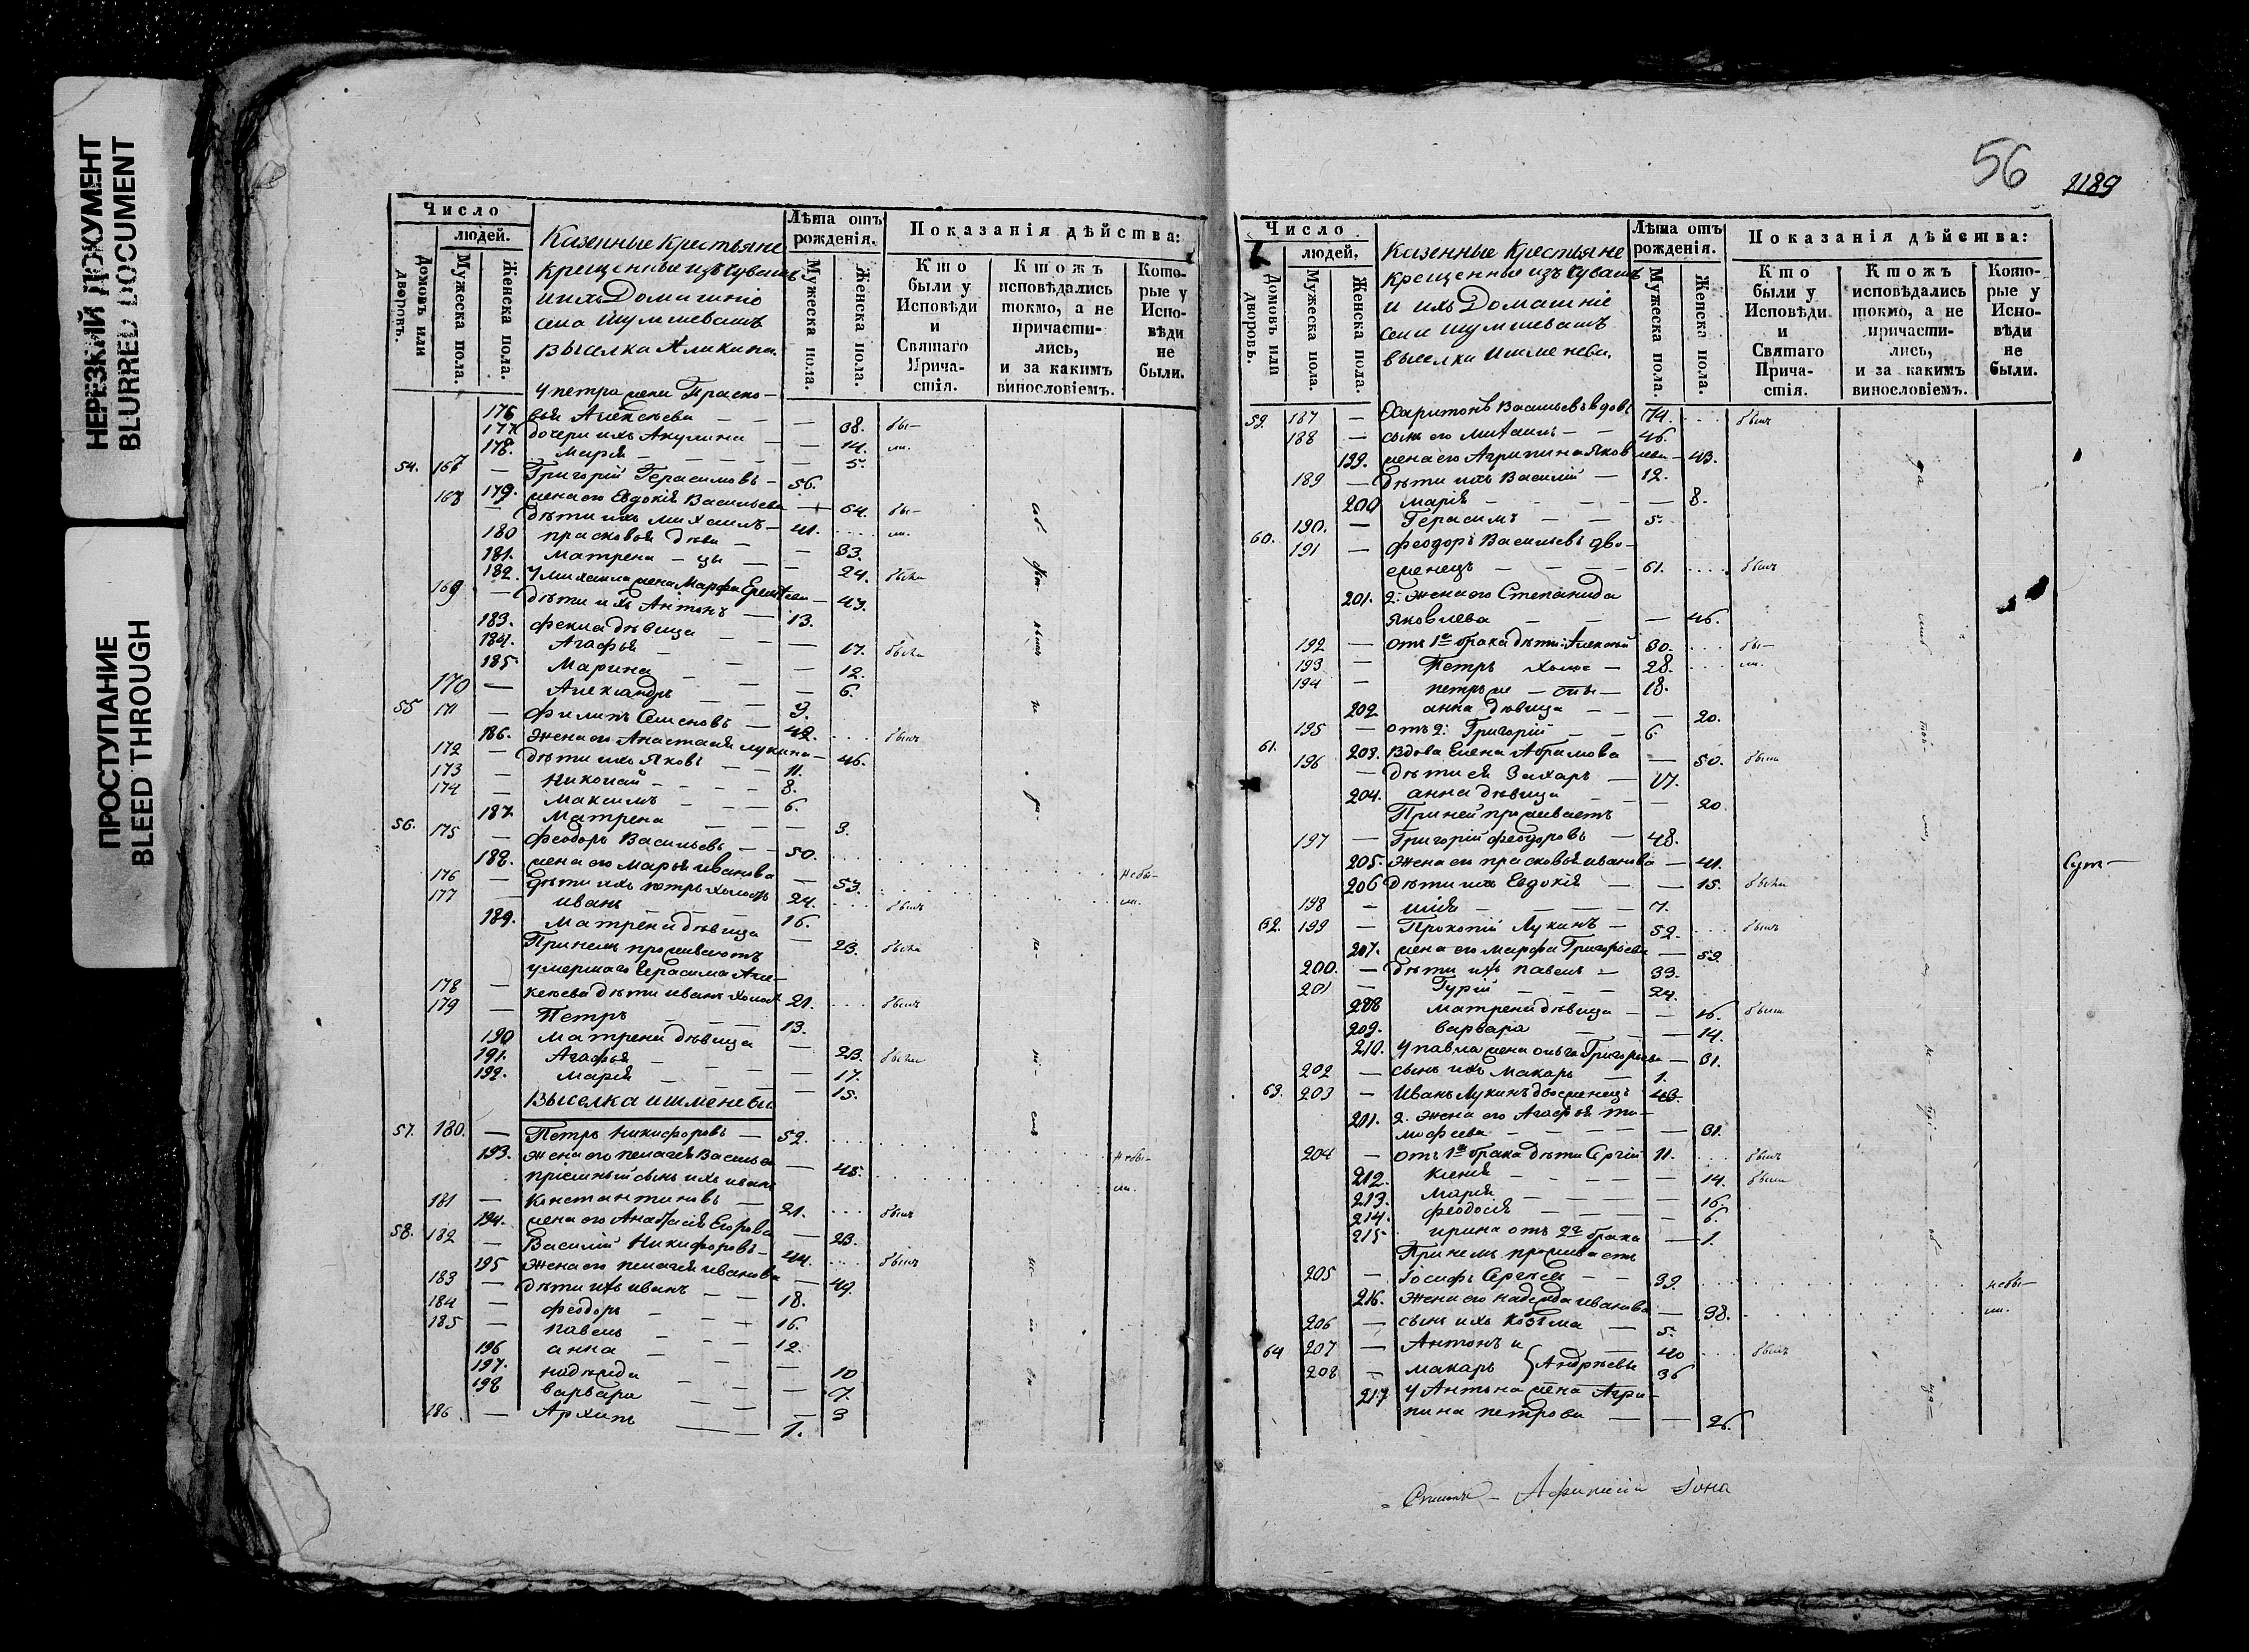 НЕРЕЗКИЙ ДОКУМЕНТ
BLURRED DOCUMENT
ПРОСТУПАНИЕ
BLEED THROUGH
Число
людей.
Домовъ или дворовъ.
Мужеска пола.
Женска пола.
Казенные Крестьяне
крещенные изъ чувашъ
и ихъ Домашніе
села Шумшевашъ
Выселка Аликина.
Лѣта отъ рожденія.
Мужеска пола.
Женска пола.
Показанія дѣйства:
Кто были у Исповѣди и Святаго Причастія.
Ктожъ исповѣдались токмо, а не причастились, и за какимъ винословіемъ.
Которые у Исповѣди не были.
У петра жена Праско-
176 вья Алексѣева — — 38. бы-
177 дочери их Акулина — — 14. ли.
178. Марія — — 5.
54. 167 — Григорій Герасимовъ — 56.
179. жена его Евдокія Васильева — 54. бы-
168 — дѣти ихъ Михаилъ — 41. ли.
180 прасковья дѣви — — 33.
181. Матрена — цы — 24. были
182. У Михаила жена Марфа — 43.
169 — дѣти ихъ Антонъ — 13.
183. Фекла дѣвица — — 17. были
184. Агафья — — 12.
185. Марина — — 6.
170 — Александръ — 3.
55 171 — Филипъ Семеновъ — 42. былъ
186. жена его Анастасія Лукина — 46.
172 — дѣти ихъ Яковъ — 11.
173 — Николай — 8.
174 — Максимъ — 6.
187. Матрена — — 3.
56. 175 — Феодоръ Васильевъ — 50.
188. жена его Марья Иванова — 53. не бы-
176 — дѣти ихъ петръ холостъ 24. ли.
177 — иванъ — 16. былъ
189. Матрена дѣвица — 23. были
При нихъ проживаютъ
умершаго Герасима Але-
178 — ксѣева дѣти иванъ холостъ 21. былъ
179 — Петръ — 13.
190 Матрена дѣвица — 23. были
191. Агафья — — 17.
192. Марія — — 15.
Выселка ишменева
57. 180. — Петръ Никифоровъ — 52.
193. жена его пелагея Васильева — 45. не бы-
пріемный сынъ ихъ иванъ ли.
181 — Константиновъ — 21. былъ
194. жена его Анастасія Егорова — 23.
58. 182 — Василій Никифоровъ — 44. былъ
195 жена его пелагея иванова — 49.
183 — дѣти ихъ иванъ — 18.
184 — феодоръ — 16.
185 — павелъ — 12.
196 анна — — 10
197. надежда — — 7.
198 варвара — — 3
186 — Архипъ — 1.
56
1189
Число
людей,
Домовъ или дворовъ.
Мужеска пола.
Женска пола.
Казенные Крестьяне
крещенные изъ чувашъ
и ихъ Домашніе
села Шумшевашъ
выселка Ишменева.
Лѣта отъ рожденія.
Мужеска пола.
Женска пола.
Показанія дѣйства:
Кто были у Исповѣди и Святаго Причастія.
Ктожъ исповѣдались токмо, а не причастились, и за какимъ винословіемъ.
Которые у Исповѣди не были.
59. 187 — Харитонъ Васильевъ вдовъ 74. былъ
188 — сынъ его Михаилъ — 46.
199. жена его Агрипина Яковлева — 43.
189 — дѣти ихъ Василій — 12.
200 марія — — 8.
190. — Герасимъ — 5.
60. 191 — Феодоръ Васильевъ дво-
еженецъ — 61. былъ
201. 2. жена его Степанида
Яковлева — — 46.
192 — отъ 1го брака дѣти: Алексѣй 30. бы-
193 — Петръ холос — 28. ли.
194 — петръ же — сты — 18.
202 анна дѣвица — — 20.
195 — отъ 2: Григорій — 6.
61. 203. Вдова Елена Абрамова — 50. была
196 — дѣти ея Захаръ — 17.
204. анна дѣвица — — 20
При ней проживаетъ
197 — Григорій феодоровъ — 48.
205. жена его прасковья иванова — 41.
206 дѣти ихъ Евдокія — — 15. были
198 — Илія — 7.
62. 199 — Прокопій Лукинъ — 52. былъ
207. жена его Марфа Григорьева — 59
200. — дѣти ихъ павелъ — 33.
201 — Гурій — 24.
208 Матрена дѣвица — — 16. были
209. варвара — — 14.
210. У павла жена ольга Григорьева — 31.
202 — сынъ ихъ Макаръ — 1.
63. 203 — Иванъ Лукинъ двоеженецъ 43.
201. 2. жена его Агафья ти-
мофеева — — 31.
204 — отъ 1го брака дѣти Сергій 11. былъ
212. Ксенія — — 14. были
213. Марія — — 16.
214. феодосія — — 6.
215. ирина отъ 2го брака — 1.
При немъ проживаетъ
205 — Іосифъ Сергѣевъ — 39.
216. жена его надежда иванова — 38. не бы-
206 — сынъ ихъ Козьма — 5. ли.
64 207 — Антонъ и — 40 былъ
208 — Макаръ } Андрѣевы 36
217 У Антона жена Агри-
пина петрова — — 26.